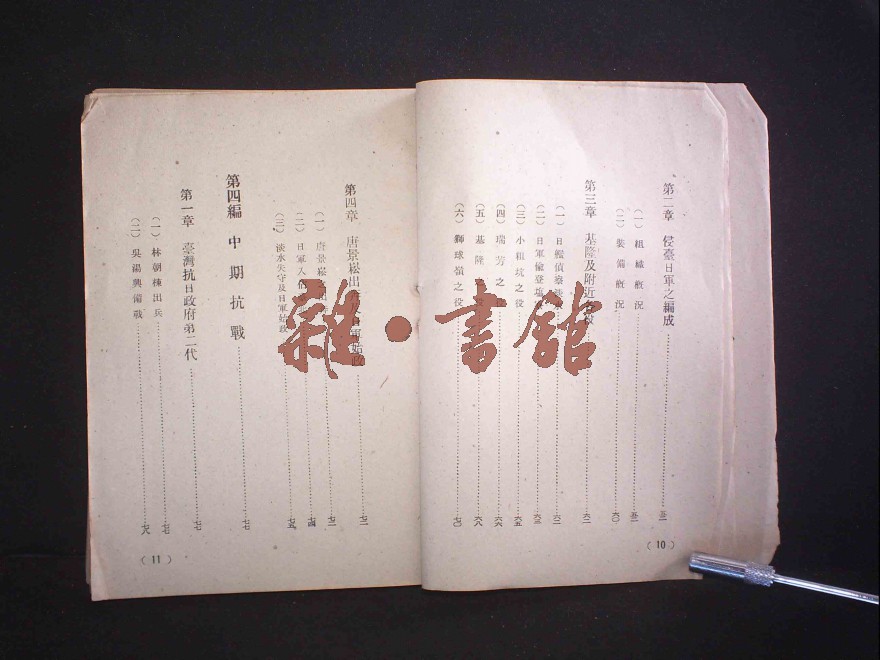 第二章 侵臺日軍之編成
(一) 組織概況
(二) 裝備概況 六〇
第三章 基隆及附近各役 六二
(一) 日艦偵察 六二
(二) 日軍偷登 六三
(三) 小粗坑之役 六五
(四) 瑞芳之 六六
(五) 基隆 六八
(六) 獅球嶺之役 七〇
(10)
第四章 唐景崧出 及日軍始政 七二
(一) 唐景崧 七二
(二) 日軍入 七四
(三) 淡水失守及日軍始政 七五
第四編 中期抗戰 七七
第一章 臺灣抗日政府第二代 七七
(一) 林朝棟出兵 七七
(二) 吳湯興備戰 七八
(11)
雜·書館